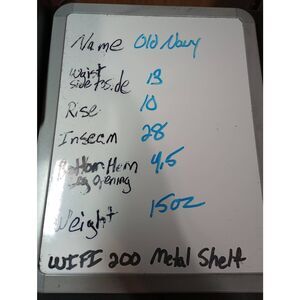 Name Old Navy
Waist
side to side 13
Rise 10
Inseam 28
Bottom Hem 4.5
Leg Opening
Weight 15oz
WIFI 200 Metal Shelf